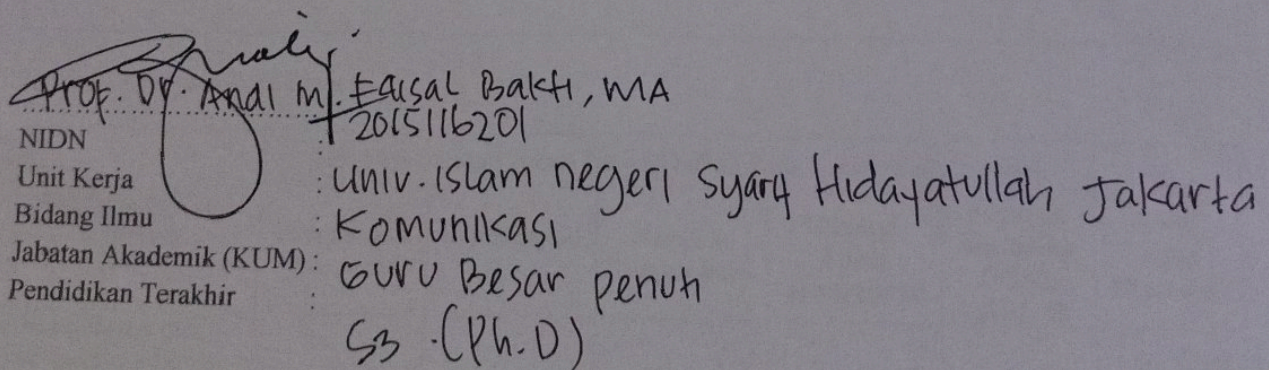 Prof. Dr. Andi M. Faisal Bakti, MA
NIDN : 2015116201
Unit Kerja : Univ. Islam negeri Syarif Hidayatullah Jakarta
Bidang Ilmu : Komunikasi
Jabatan Akademik (KUM) : Guru Besar penuh
Pendidikan Terakhir : S3 . (Ph.D)